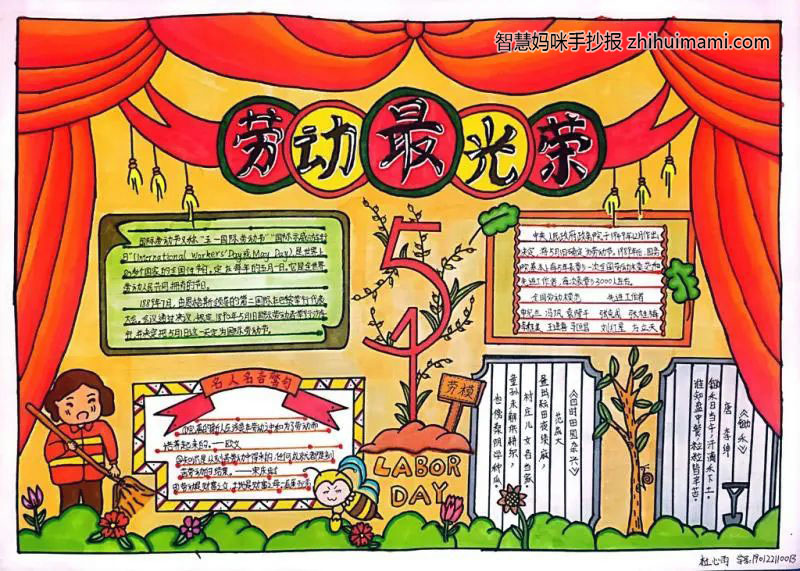 智慧妈咪手抄报 zhihuimami.com
劳动最光荣
国际劳动节又称"五一国际劳动节""国际示威游行
日"(International Workers' Day或May Day)是世界上
80多个国家的全国性节日。定在每年的五月一日。它是全世界
劳动人民共同拥有的节日。
1889年7月,由恩格斯领导的第二国际在巴黎举行代表
大会。会议通过决议,规定1890年5月1日国际劳动者举行游行
并决定把5月1日这一天定为国际劳动节。
中央人民政府政务院于1949年12月作出
决定,将5月1日确定为劳动节。1989年后,国务
先进工作者,每次表彰3000人左右。
全国劳动模范 先进工作者
51
名人名言警句
——欧文
——宋庆龄
劳模
LABOR
DAY
《四时田园杂兴》
范成大
昼出耘田夜绩麻,
村庄儿女各当家。
童孙未解供耕织,
也傍桑阴学种瓜。
《锄禾》
唐 李绅
锄禾日当午,汗滴禾下土。
谁知盘中餐,粒粒皆辛苦。